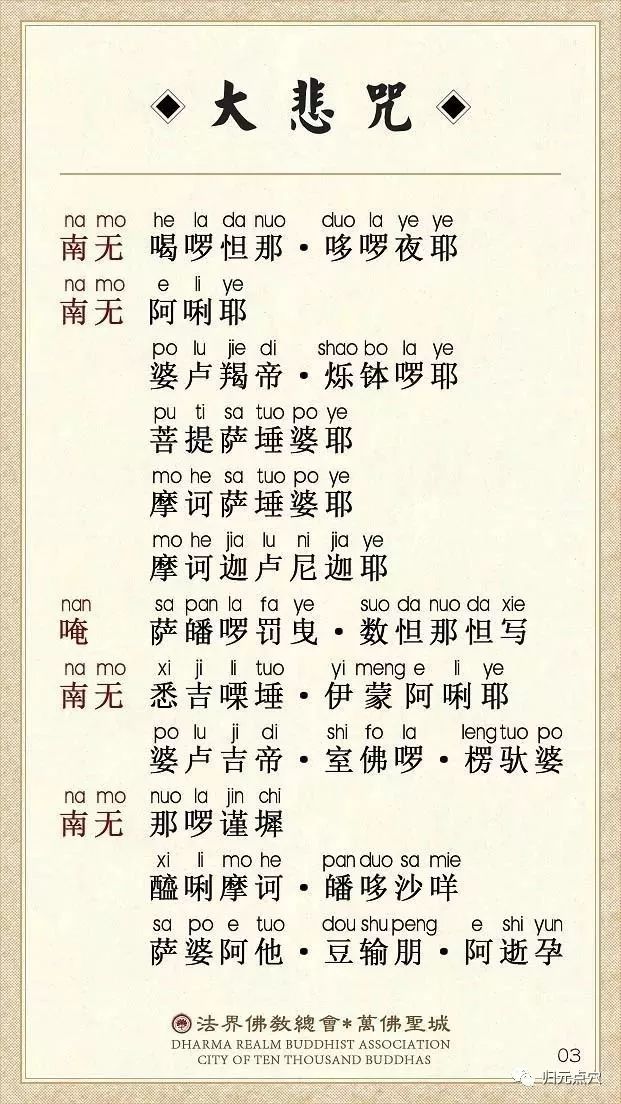 大悲咒
na mo he la da nuo duo la ye ye
南无 喝啰怛那·哆啰夜耶
na mo e li ye
南无 阿唎耶
po lu jie di shao bo la ye
婆卢羯帝·烁钵啰耶
pu ti sa tuo po ye
菩提萨埵婆耶
mo he sa tuo po ye
摩诃萨埵婆耶
mo he jia lu ni jia ye
摩诃迦卢尼迦耶
nan sa pan la fa ye suo da nuo da xie
唵 萨皤啰罚曳·数怛那怛写
na mo xi ji li tuo yi meng e li ye
南无 悉吉㗚埵·伊蒙阿唎耶
po lu ji di shi fo la leng tuo po
婆卢吉帝·室佛啰·楞驮婆
na mo nuo la jin chi
南无 那啰谨墀
xi li mo he pan duo sa mie
醯唎摩诃·皤哆沙咩
sa po e tuo dou shu peng e shi yun
萨婆阿他·豆输朋·阿逝孕
法界佛教總會*萬佛聖城
DHARMA REALM BUDDHIST ASSOCIATION
CITY OF TEN THOUSAND BUDDHAS
03
归元点穴